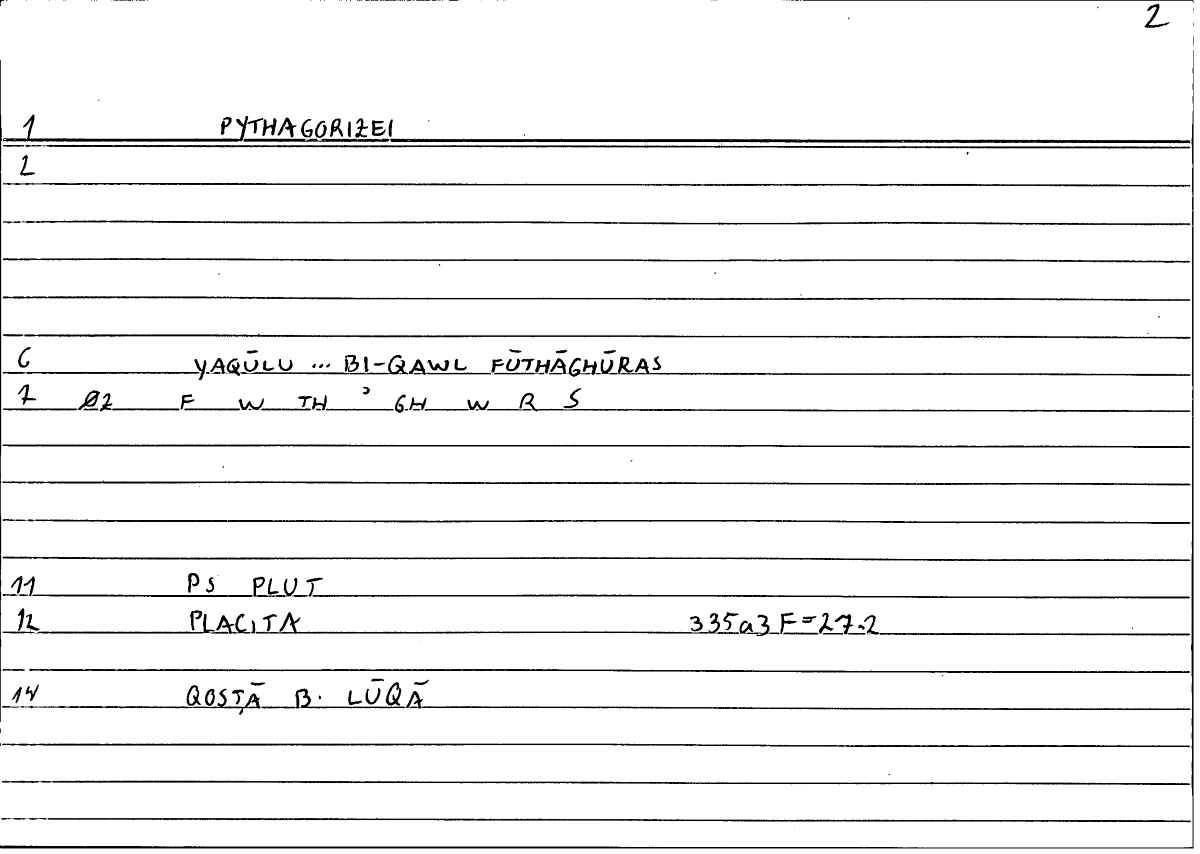 2
1 PYTHAGORIZEI
2
6 YAQŪLU ... BI-QAWL FŪTHĀGHŪRAS
7 02 F W TH ʾ GH W R S
11 PS PLUT
12 PLACITA 335a3 F=27.2
14 QOSṬĀ B. LŪQĀ